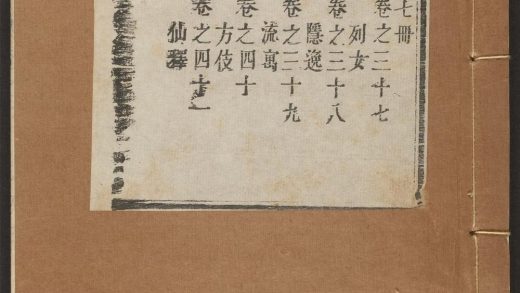 七冊
卷之三十七
列女
卷之三十八
隱逸
卷之三十九
流寓
卷之四十
方伎
卷之四十一
仙釋